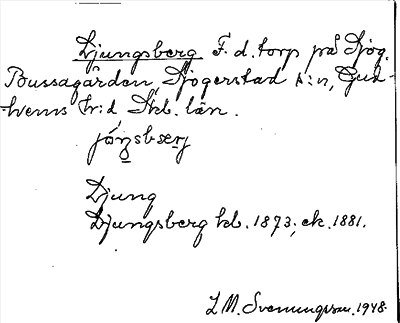 Djungsberg F. d. torp på Sjög.
Bussagården, Sjogerstad s:n, Gud-
hems hr:d Skb. län.
Djung
Djungsberg kb. 1873; ek. 1881.
L M. Svenungsson. 1948.